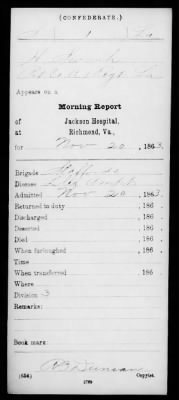 (CONFEDERATE.)
1
H.
Appears on a
Morning Report
of Jackson Hospital,
at Richmond, Va.,
for Nov 20, 1863.
Brigade
Disease
Admitted Nov 20, 1863.
Returned to duty , 186 .
Discharged , 186 .
Deserted , 186 .
Died , 186 .
When furloughed , 186 .
Time
When transferred , 186 .
Where
Division 3
Remarks:
Book mark:
Duncan
(656) Copyist.